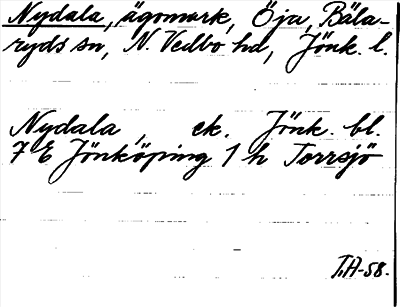 Nydala, ägomark, Öja, Bäla-
ryds sn, N. Vedbo hd, Jönk. l.
Nydala, ek. Jönk. bl.
7 E Jönköping 1 h Torrsjö
T.A-58.